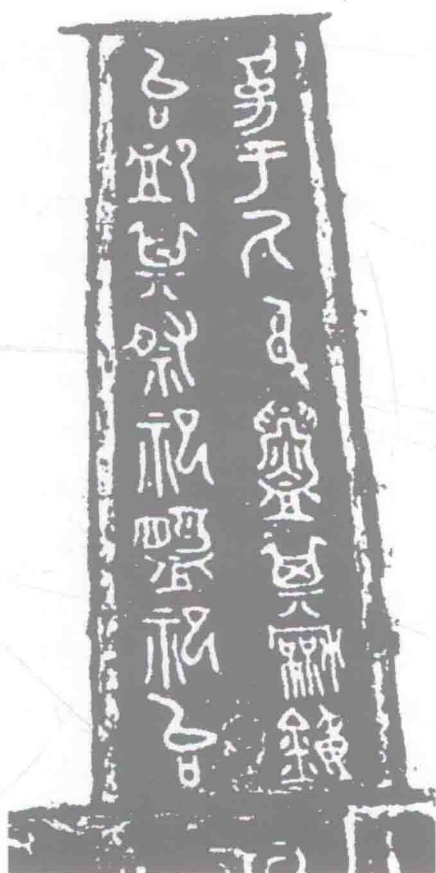 㒸于氒身鑄其龢鐘
台卹其祭祀盟祀台